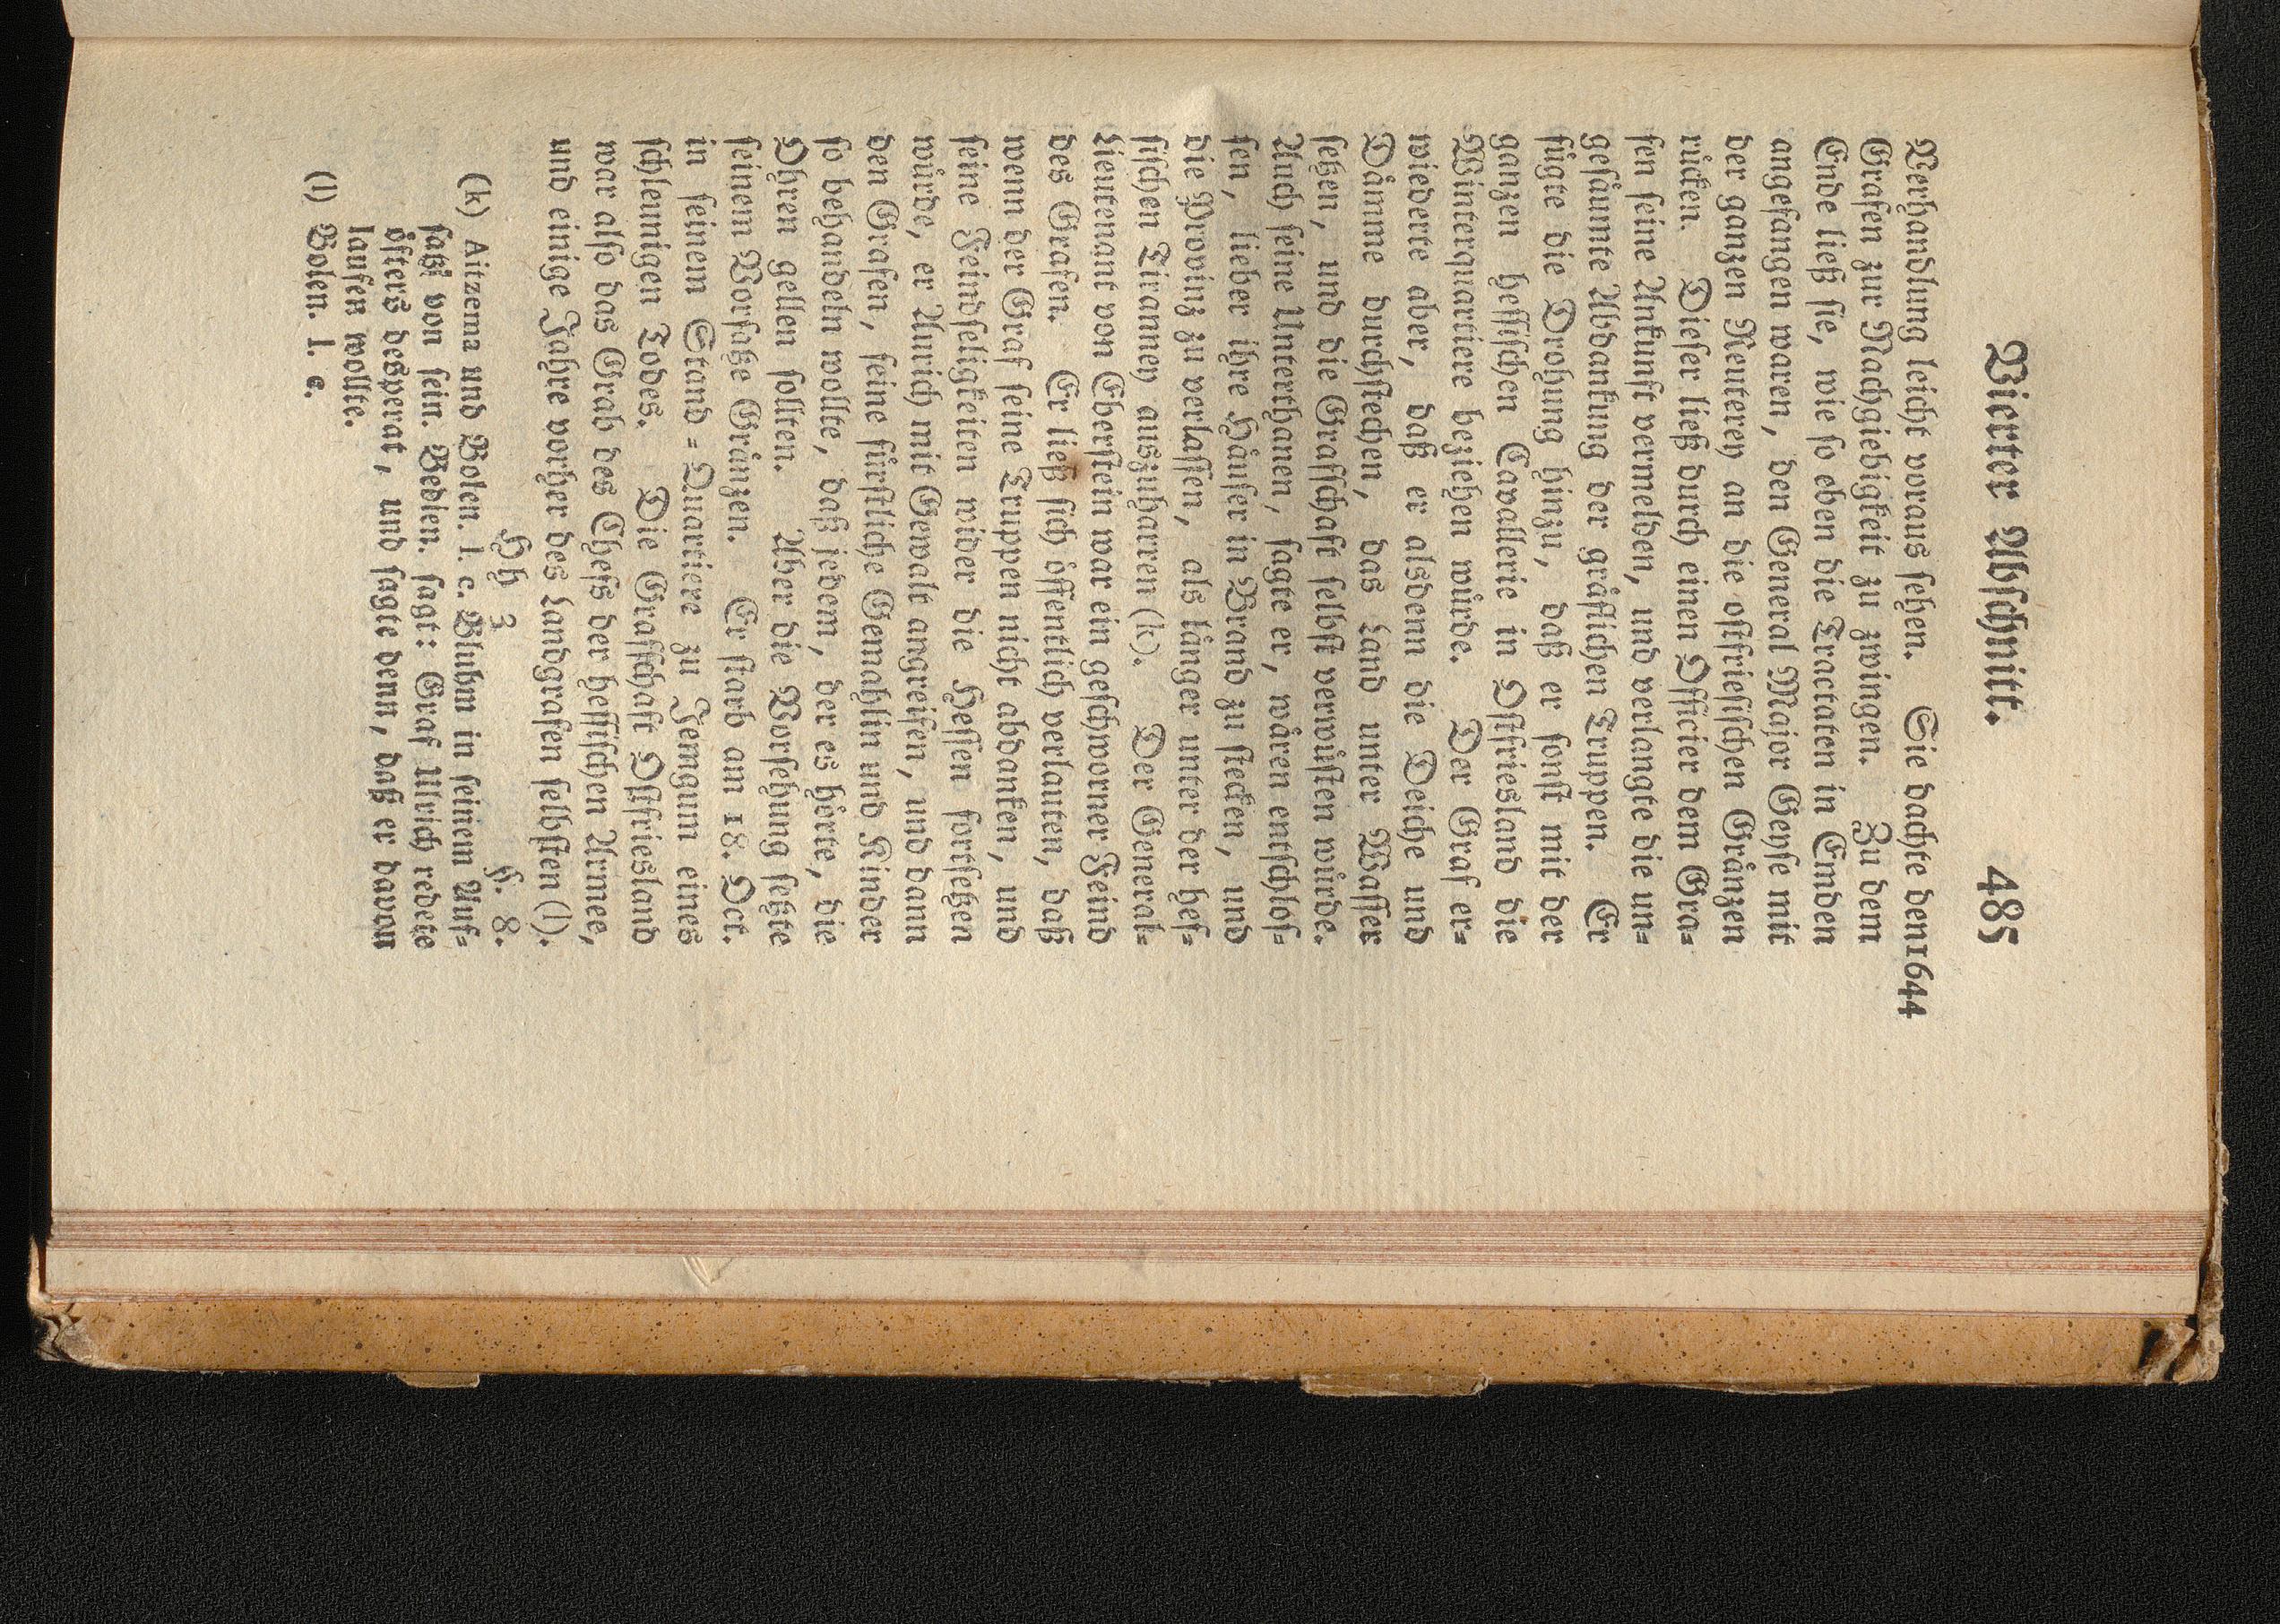 Vierter Abschnitt. 485
Verhandlung leicht voraus sehen. Sie dachte den 1644
Grafen zur Nachgiebigkeit zu zwingen. Zu dem
Ende ließ sie, wie so eben die Tractaten in Emden
angefangen waren, den General Major Geyse mit
der ganzen Reuterey an die ostfriesischen Gränzen
rücken. Dieser ließ durch einen Officier dem Gra-
fen seine Ankunft vermelden, und verlangte die un-
gesäumte Abdankung der gräflichen Truppen. Er
fügte die Drohung hinzu, daß er sonst mit der
ganzen hessischen Cavallerie in Ostfriesland die
Winterquartiere beziehen würde. Der Graf er-
wiederte aber, daß er alsdenn die Deiche und
Dämme durchstechen, das Land unter Wasser
setzen, und die Grafschaft selbst verwüsten würde.
Auch seine Unterthanen, sagte er, wären entschlos-
sen, lieber ihre Häuser in Brand zu stecken, und
die Provinz zu verlassen, als länger unter der hes-
sischen Tiranney auszuharren (k). Der General-
Lieutenant von Eberstein war ein geschworner Feind
des Grafen. Er ließ sich öffentlich verlauten, daß
wenn der Graf seine Truppen nicht abdanken, und
seine Feindseligkeiten wider die Hessen fortsetzen
würde, er Aurich mit Gewalt angreifen, und dann
den Grafen, seine fürstliche Gemahlin und Kinder
so behandeln wollte, daß jedem, der es hörte, die
Ohren gellen sollten. Aber die Vorsehung setzte
seinem Vorsatze Gränzen. Er starb am 18. Oct.
in seinem Stand-Quartiere zu Jemgum eines
schleunigen Todes. Die Grafschaft Ostfriesland
war also das Grab des Chefs der hessischen Armee,
und einige Jahre vorher des Landgrafen selbsten (l).
Hh 3 §. 8.
(k) Aitzema und Bolen. l. c. Bluhm in seinem Auf-
satz von sein. Bedien. sagt: Graf Ulrich redete
öfters desperat, und sagte denn, daß er davon
laufen wollte.
(l) Bolen. l. c.